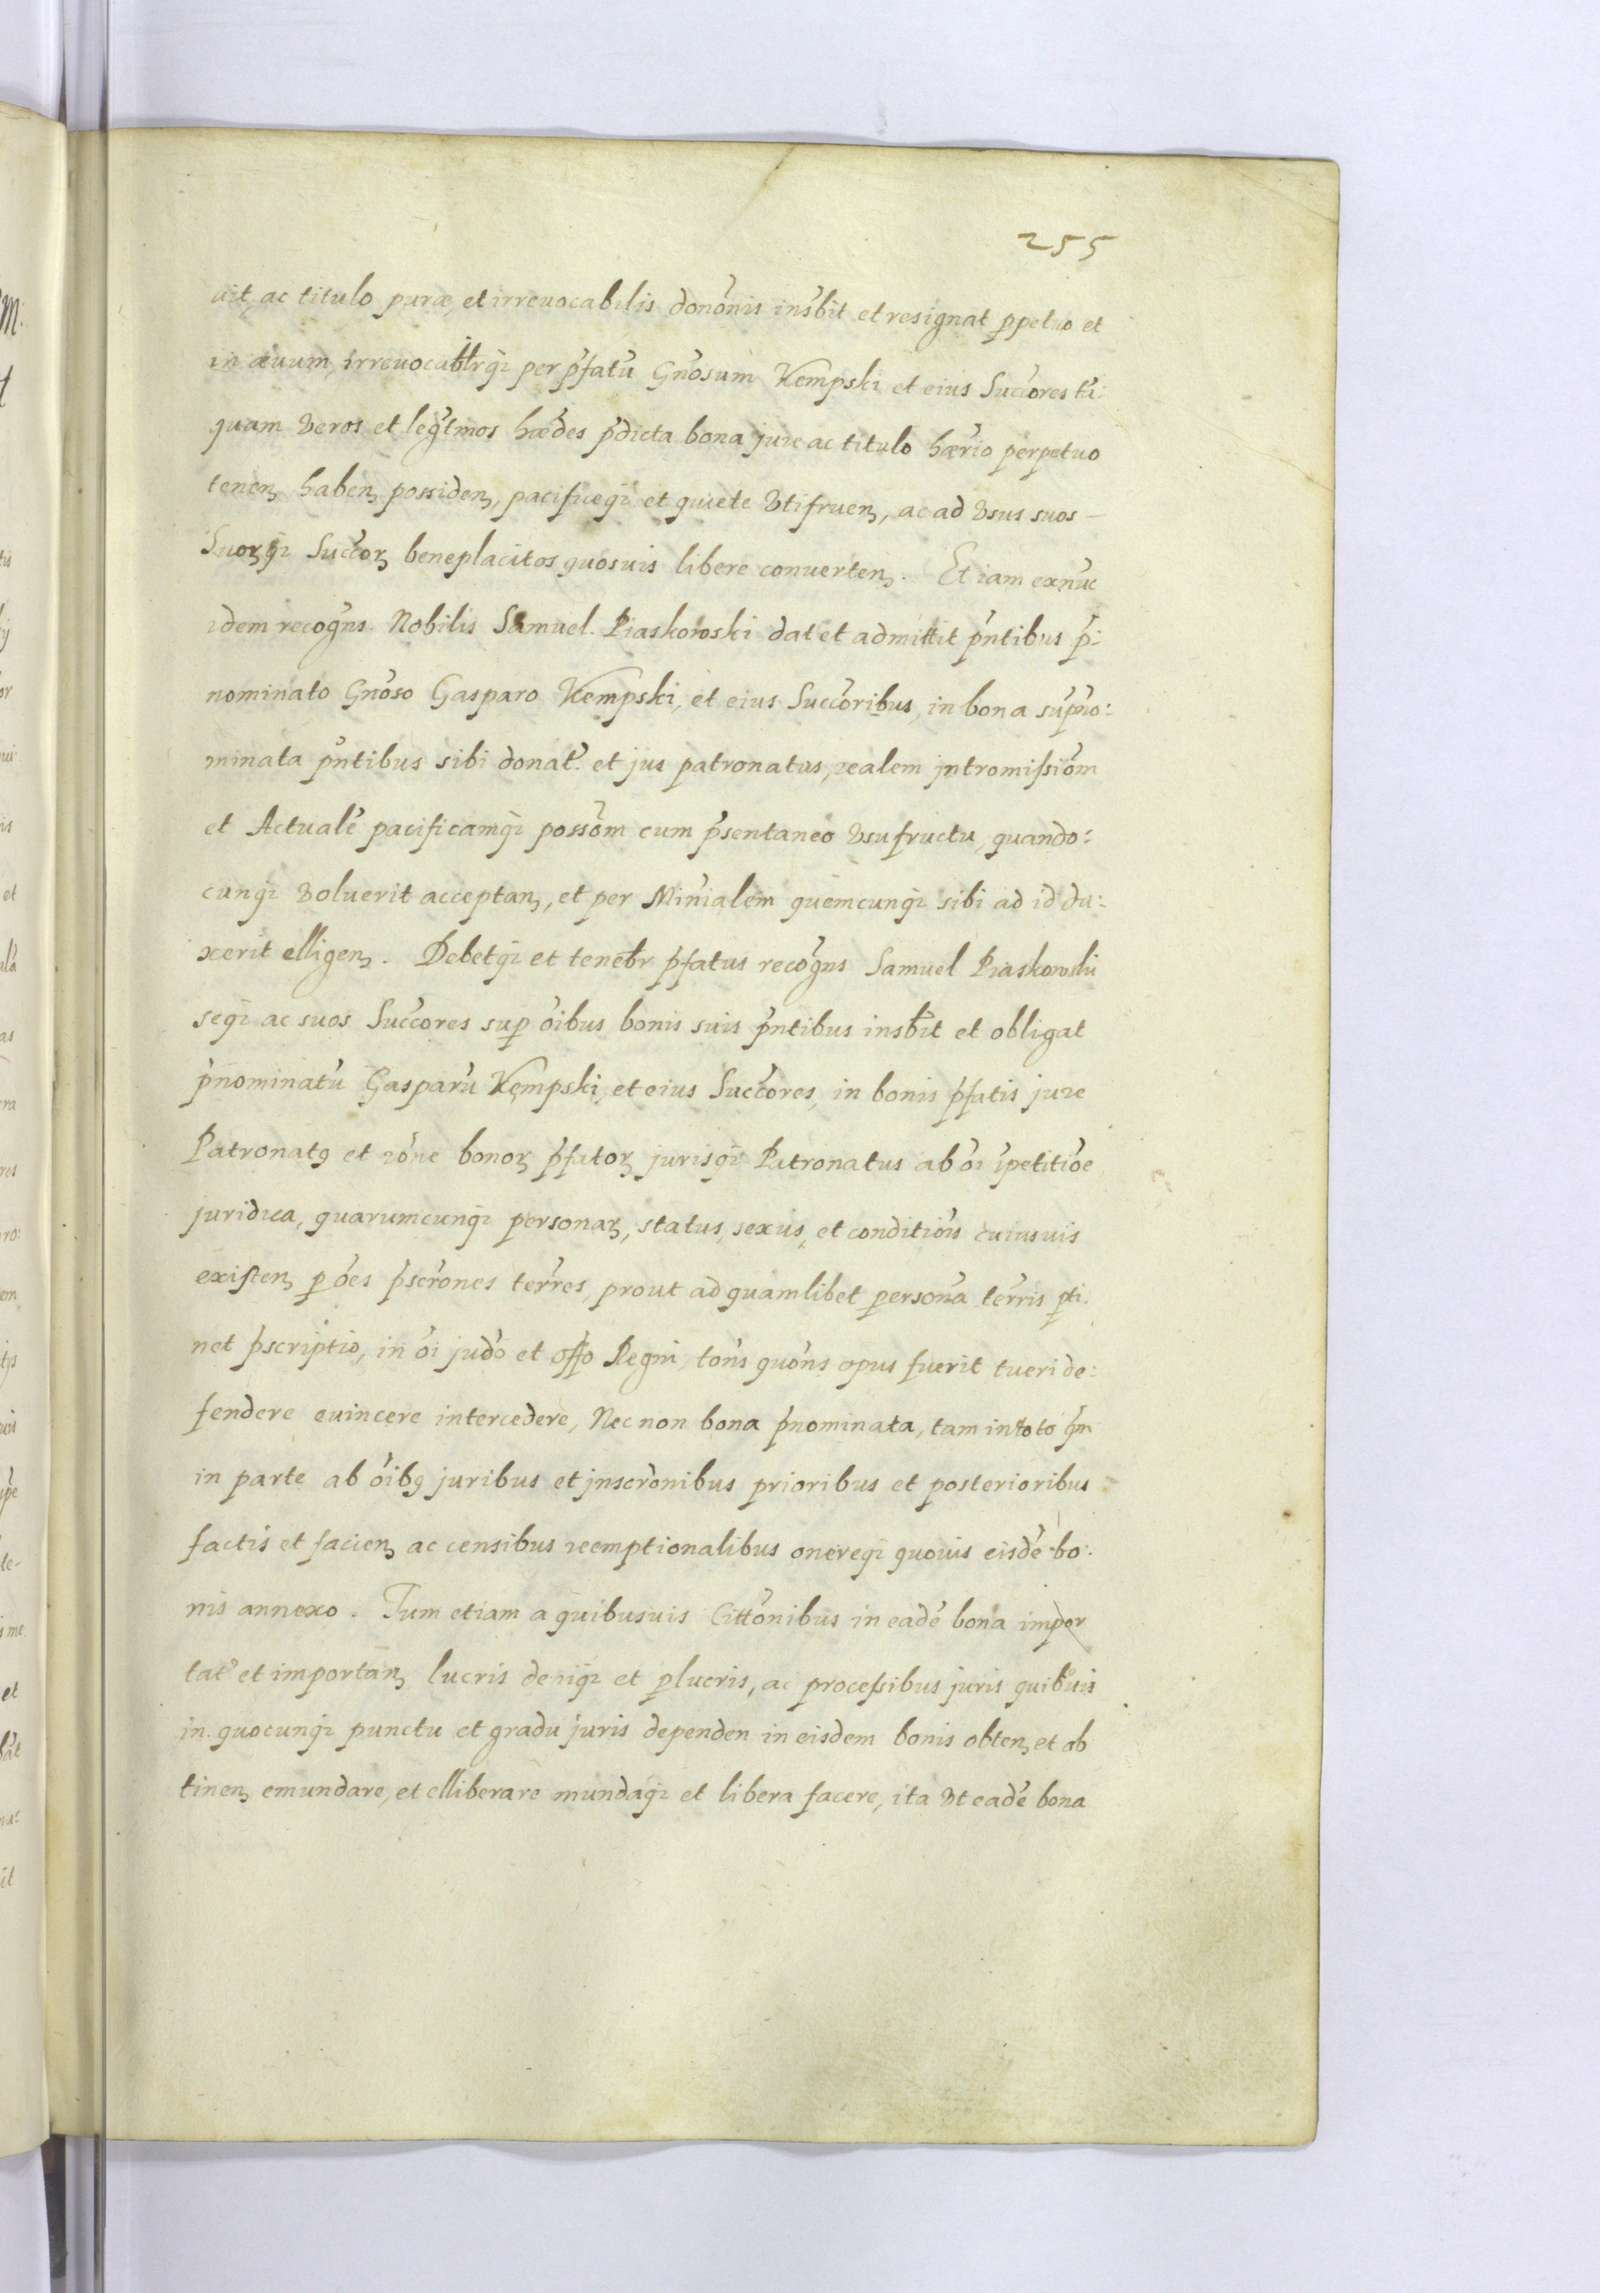 255
uit, ac titulo puræ, et irreuocabilis donõnis insbit et resignat ꝑpetuo et
in æuum, irreuocabtrqꝫ per pfatũ Gnõsum Kempski et eius Succores tã:
quam veros et legtmos hædes pdicta bona jure ac titulo hærio perpetuo
tenenꝫ habenꝫ possidenꝫ, pacificeqꝫ et quiete vtifruenꝫ, ac ad vsus suos –
Suorꝫqꝫ Succorꝫ beneplacitos quosuis libere conuertenꝫ. Et iam exnũc
idem recogns. Nobilis Samuel. Piaskowski dat et admittit pntibus p:
nominato Gnõso Gasparo Kempski, et eius Succoribus, in bona supno:
minata pntibus sibi donat. et jus patronatus, realem jntromissiõm
et Actualẽ pacificamqꝫ possõm cum psentaneo vsufructu, quando:
cunqꝫ voluerit acceptanꝫ, et per Minialem quemcunqꝫ sibi ad id du:
xerit elligenꝫ. Debetqꝫ et tenebr pfatus recogns Samuel Piaskowski
seqꝫ ac suos Succores suꝑ õibus bonis suis pntibus insbit et obligat
pnominatũ Gasparũ Kempski, et eius Succores, in bonis pfatis jure
Patronatꝰ et rõne bonorꝫ pfatorꝫ jurisqꝫ Patronatus ab õi ipetitiõe
juridica, quarumcunqꝫ personarꝫ, status, sexus, et conditiõis cuiusuis
existenꝫ ꝑ ões pscrõnes terres, prout ad quamlibet personã terris ꝑti:
net pscriptio, in õi judõ et offo Regni, tõns quõns opus fuerit tueri de:
fendere euincere intercedere, Nec non bona pnominata, tam in toto qm
in parte ab õibꝰ juribus et jnscrõnibus prioribus et posterioribus
factis et facienꝫ ac censibus reemptionalibus onereqꝫ quouis eisdẽ bo:
nis annexo. Tum etiam a quibusuis Cittõnibus in eadẽ bona impor
tat et importanꝫ lucris deniqꝫ et ꝑlucris, ac processibus juris quibuis
in quocunqꝫ punctu et gradu juris dependen in eisdem bonis obtenꝫ et ob
tinenꝫ emundare, et elliberare mundaqꝫ et libera facere, ita vt eadẽ bona